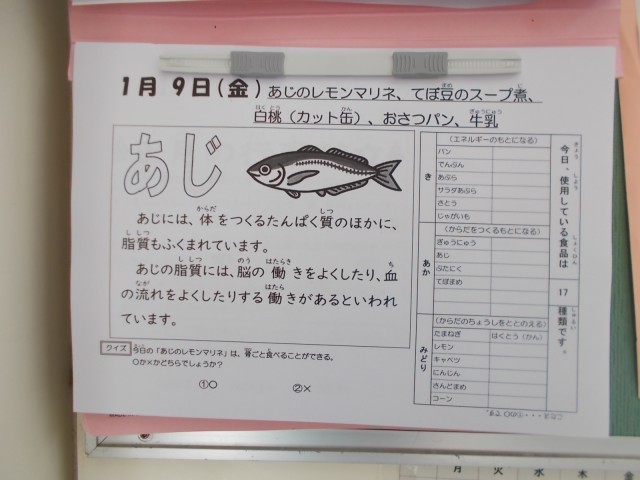 1月 9日(金) あじのレモンマリネ、てぼ豆のスープ煮、
白桃(カット缶)、おさつパン、牛乳
あじ
あじには、体をつくるたんぱく質のほかに、
脂質もふくまれています。
あじの脂質には、脳の働きをよくしたり、血
の流れをよくしたりする働きがあるといわれ
ています。
クイズ
今日の「あじのレモンマリネ」は、骨ごと食べることができる。
○か×かどちらでしょうか?
①○ ②×
今日、使用している食品は 17 種類です。
き
(エネルギーのもとになる)
パン
でんぷん
あぶら
サラダあぶら
さとう
じゃがいも
あか
(からだをつくるもとになる)
ぎゅうにゅう
あじ
ぶたにく
てぼまめ
みどり
(からだのちょうしをととのえる)
たまねぎ はくとう(かん)
レモン
キャベツ
にんじん
さんどまめ
コーン
月 火 水 木 金